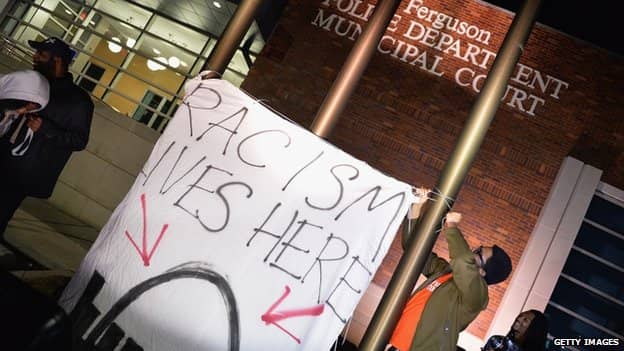 Ferguson
POLICE DEPARTMENT
MUNICIPAL COURT
RACISM
LIVES
HERE
GETTY IMAGES